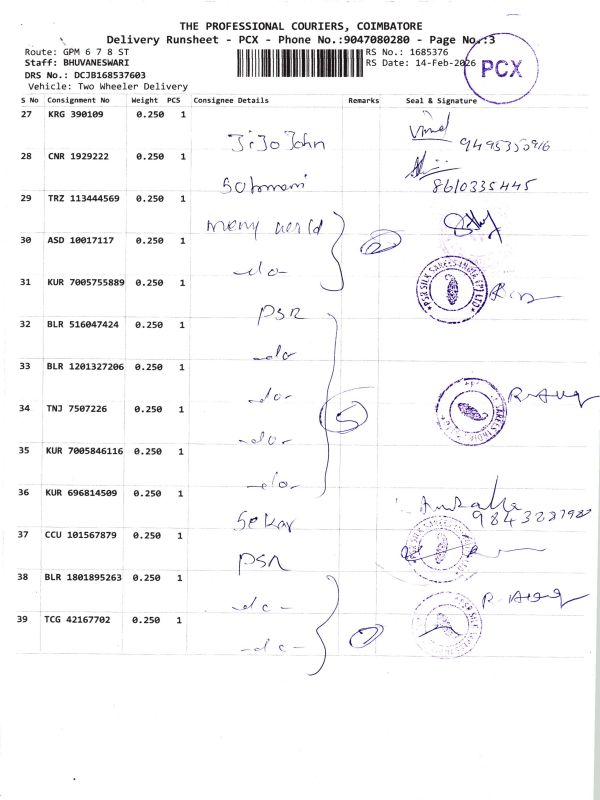 THE PROFESSIONAL COURIERS, COIMBATORE
Delivery Runsheet - PCX - Phone No.:9047080280 - Page No.:3
Route: GPM 6 7 8 ST
RS No.: 1685376
Staff: BHUVANESWARI
RS Date: 14-Feb-2026
PCX
DRS No.: DCJB168537603
Vehicle: Two Wheeler Delivery
S No Consignment No Weight PCS Consignee Details Remarks Seal & Signature
27 KRG 390109 0.250 1
Jijo John
28 CNR 1929222 0.250 1
8610335445
29 TRZ 113444569 0.250 1
30 ASD 10017117 0.250 1
-do-
31 KUR 7005755889 0.250 1
PSR
32 BLR 516047424 0.250 1
-do-
33 BLR 1201327206 0.250 1
-do-
34 TNJ 7507226 0.250 1
5
-do-
35 KUR 7005846116 0.250 1
-do-
36 KUR 696814509 0.250 1
Sekar
37 CCU 101567879 0.250 1
PSR
38 BLR 1801895263 0.250 1
-do-
39 TCG 42167702 0.250 1
-do-